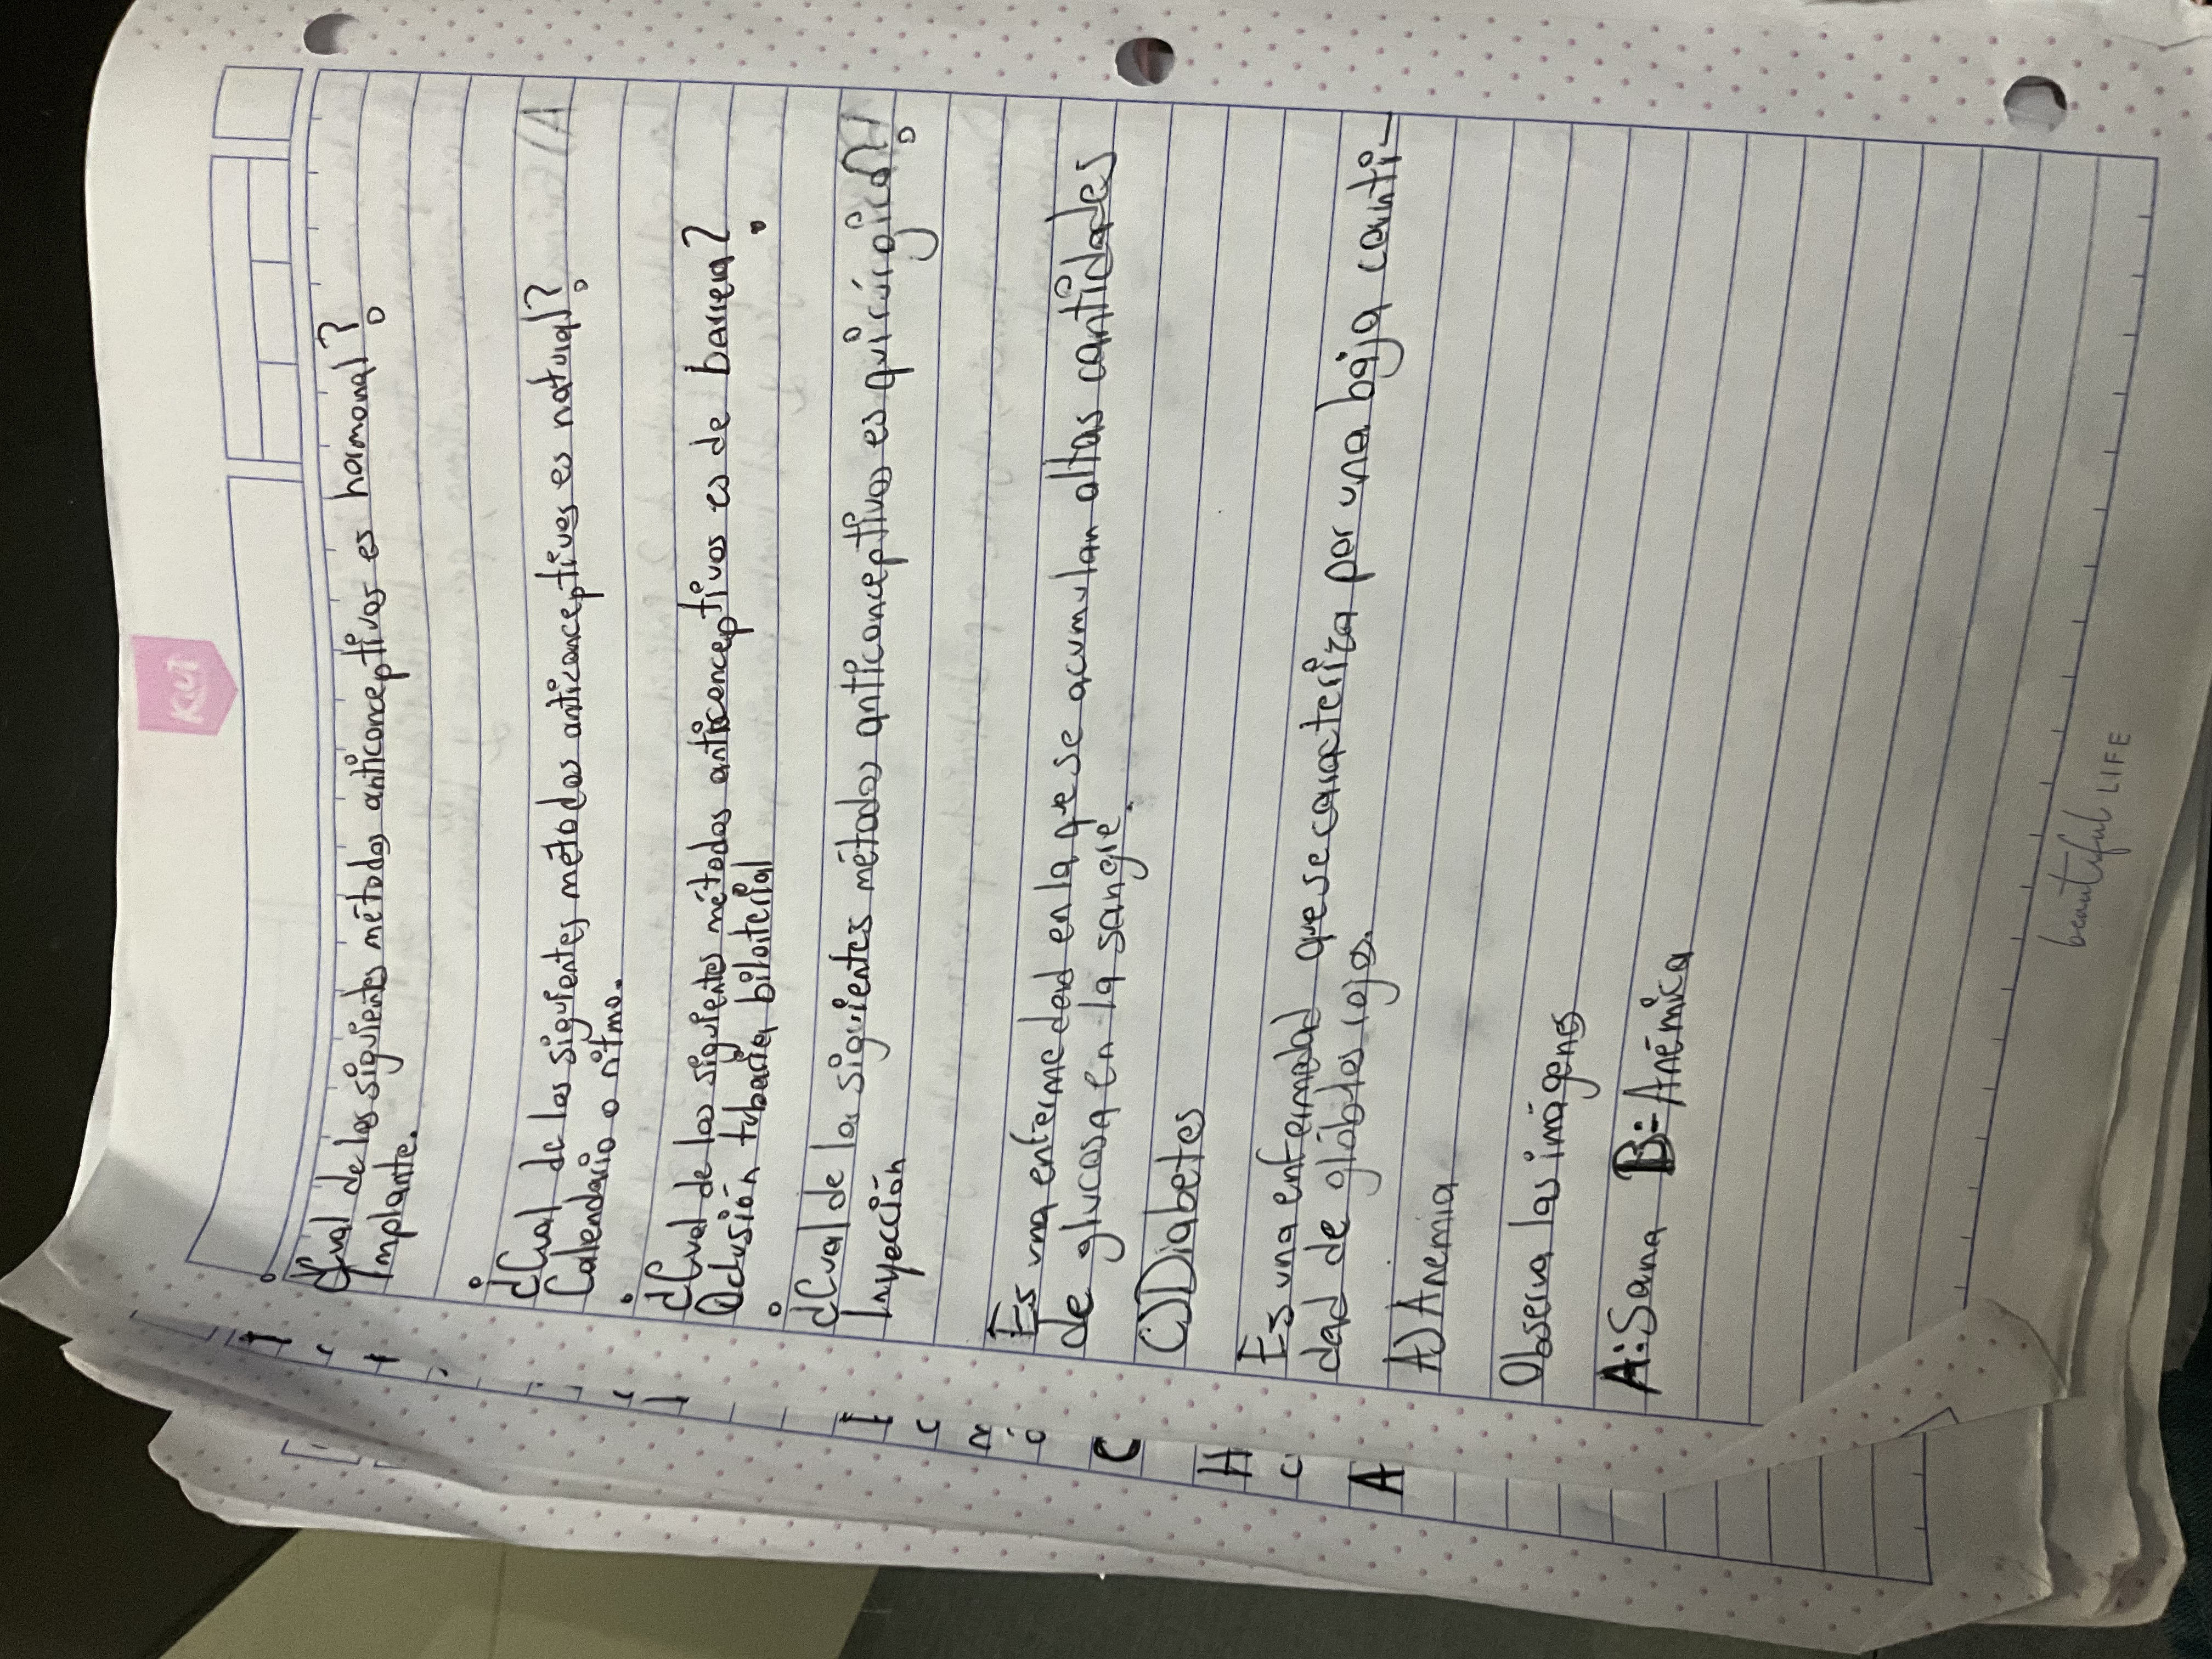 Kut
¿Cual de los siguientes métodos anticonceptivos es hormonal?
Implante.
¿Cual de los siguientes métodos anticonceptivos es natural?
Calendario o ritmo.
¿Cual de los siguientes métodos anticonceptivos es de barrera?
Oclusión tubaria bilaterial
¿Cual de los siguientes métodos anticonceptivos es quirúrgico?
Inyección
Es una enfermedad en la que se acumulan altas cantidades
de glucosa en la sangre.
C) Diabetes
Es una enfermedad que se caracteriza por una baja canti-
dad de glóbulos rojos.
A) Anemia
Observa las imágenes
A:Sana B:Anémica
beautiful LIFE